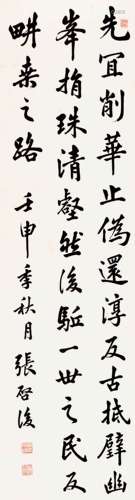 先宜削華止偽還淳反古抵璧幽
峯捐珠清壑然後駈一世之民反
畊桑之路
壬申季秋月張啓後